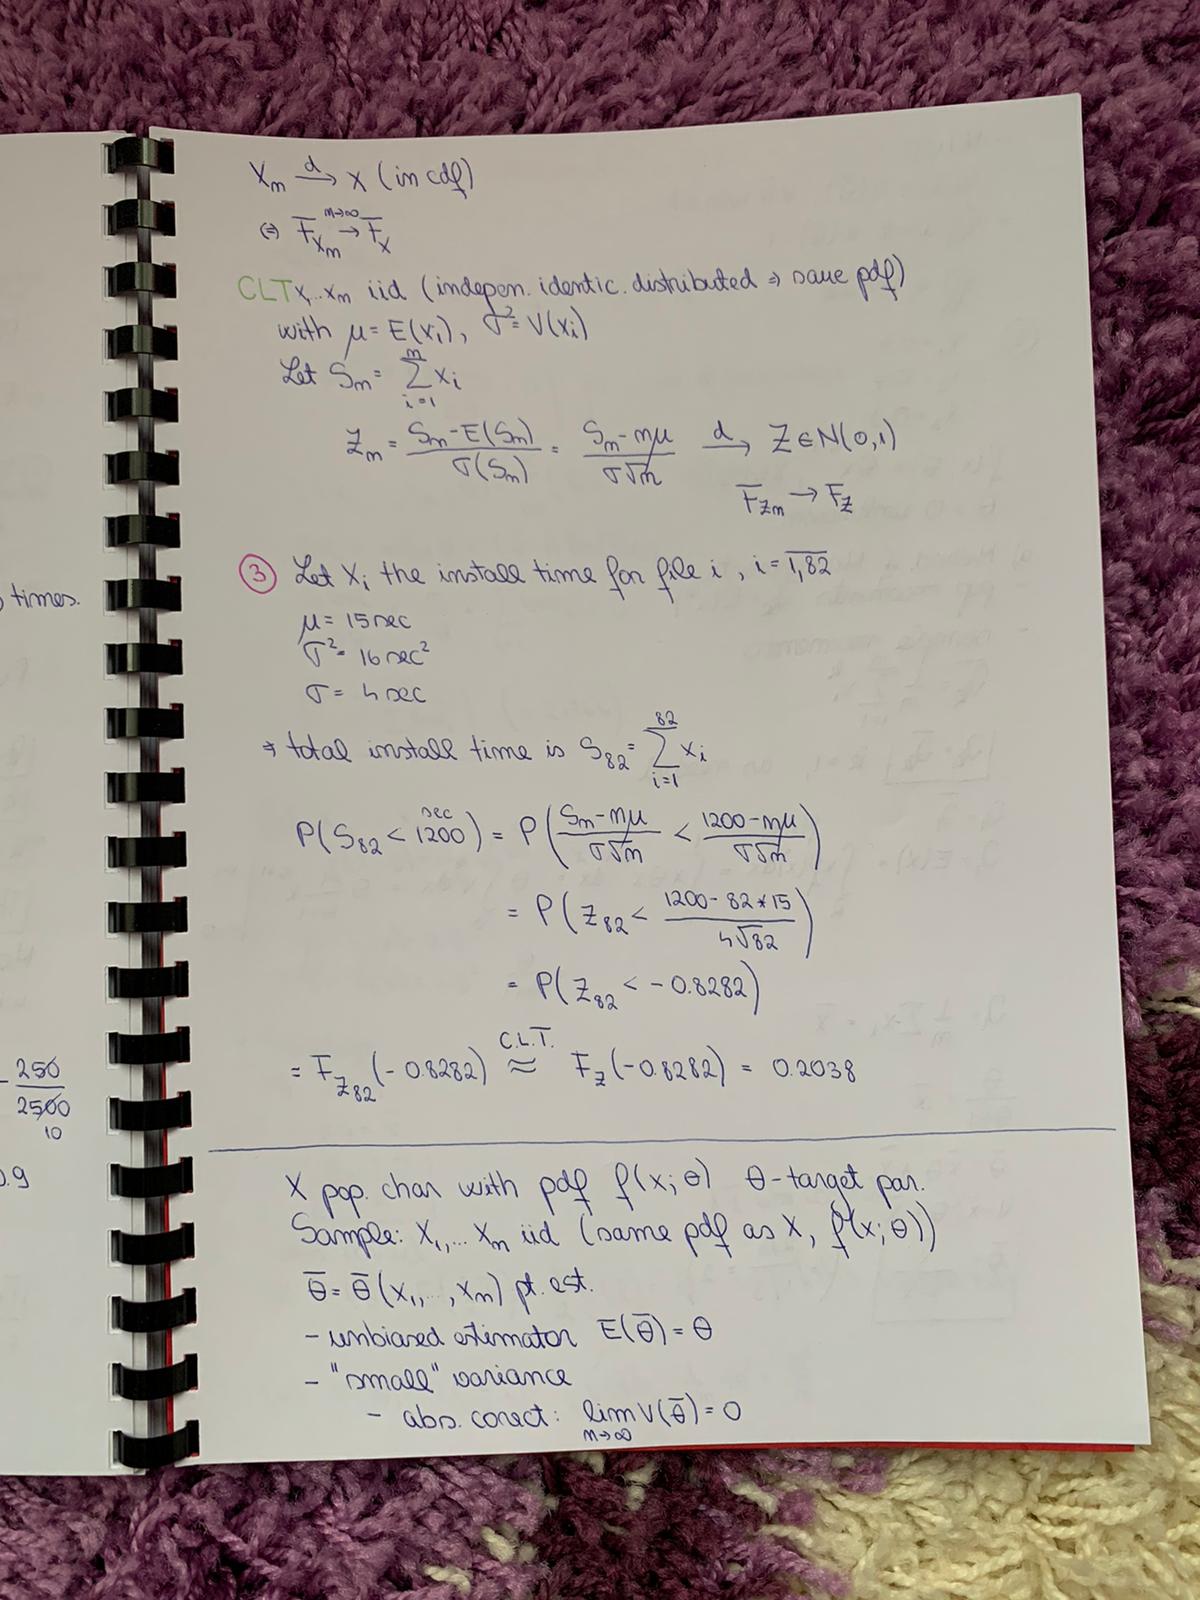 times.
250
2500
10
0.9
Xₙ →ᵈ X (in cdf)
⇔ F_Xₙ →ⁿ→∞ F_X
CLT X₁...Xₙ iid (indepen. identic. distributed ⇒ same pdf)
with μ = E(Xᵢ), σ² = V(Xᵢ)
Let Sₙ = ∑ᵢ₌₁ⁿ Xᵢ
Zₙ = (Sₙ - E(Sₙ))/σ(Sₙ) = (Sₙ - nμ)/(σ√n) →ᵈ Z ∈ N(0,1)
F_Zₙ → F_Z
③ Let Xᵢ the install time for file i, i = 1,82
μ = 15 sec
σ² = 16 sec²
σ = 4 sec
⇒ total install time is S₈₂ = ∑ᵢ₌₁⁸² Xᵢ
P(S₈₂ < 1200 sec) = P((Sₙ - nμ)/(σ√n) < (1200 - nμ)/(σ√n))
= P(Z₈₂ < (1200 - 82*15)/(4√82))
= P(Z₈₂ < -0.8282)
= F_Z₈₂(-0.8282) ≈ C.L.T. F_Z(-0.8282) = 0.2038
X pop. char with pdf f(x;θ) θ-target par.
Sample: X₁,... Xₙ iid (same pdf as X, f(x;θ))
θ̄ = θ̄(X₁,..., Xₙ) pt. est.
- unbiased estimator E(θ̄) = θ
- "small" variance
- abs. corect: lim n→∞ V(θ̄) = 0